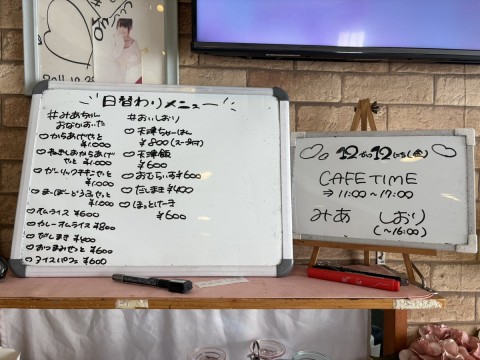 2011.12.25
日替わりメニュー
#みあちゃん
おなかおいた
♡からあげせっと
¥1.000
♡ねぎしおからあげ
せっと ¥1.000
♡ガーリックチキンせっと
¥1.000
♡まーぼーどうふせっと
¥1.000
♡オムライス ¥600
♡カレーオムライス ¥800
♡だしまき ¥400
♡おつまみせっと ¥600
♡アイスパフェ ¥600
#おいしおり
♡天津ちゃーはん
¥800(スープ付)
♡天津飯
¥600
♡おむらいす ¥600
♡だしまき ¥400
♡ほっとけーき
¥600
♡12がつ12にち(金)♡
CAFE TIME
⇒11:00~17:00
みあ しおり
(~16:00)